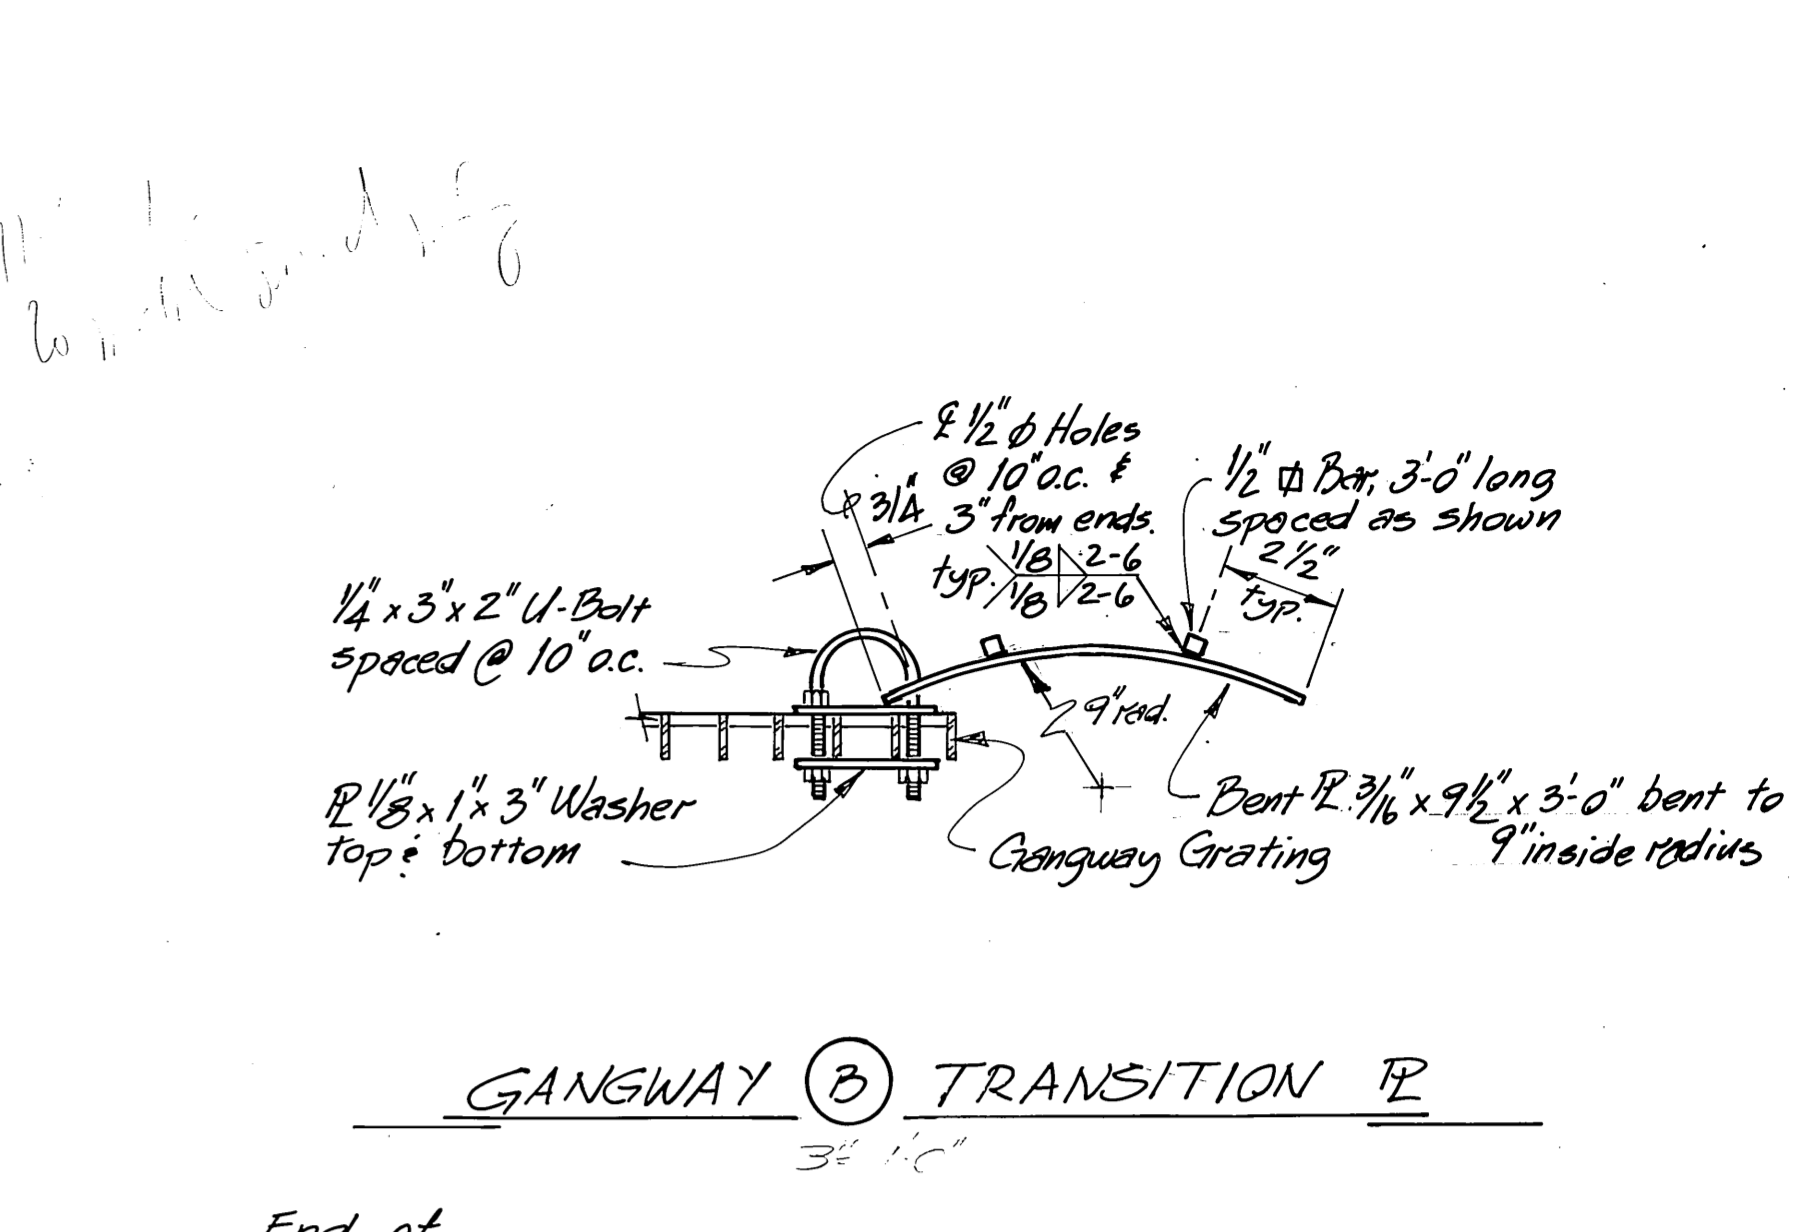 ℄ 1/2" ϕ Holes
@ 10" o.c. &
3" from ends.
3/4"
1/2" ⌷ Bar, 3'-0" long
spaced as shown
2 1/2"
typ.
typ. 1/8 2-6
1/8 2-6
1/4" x 3" x 2" U-Bolt
spaced @ 10" o.c.
9" rad.
PL 1/8" x 1" x 3" Washer
top & bottom
Gangway Grating
Bent PL 3/16" x 9 1/2" x 3'-0" bent to
9" inside radius
GANGWAY B TRANSITION PL
End of